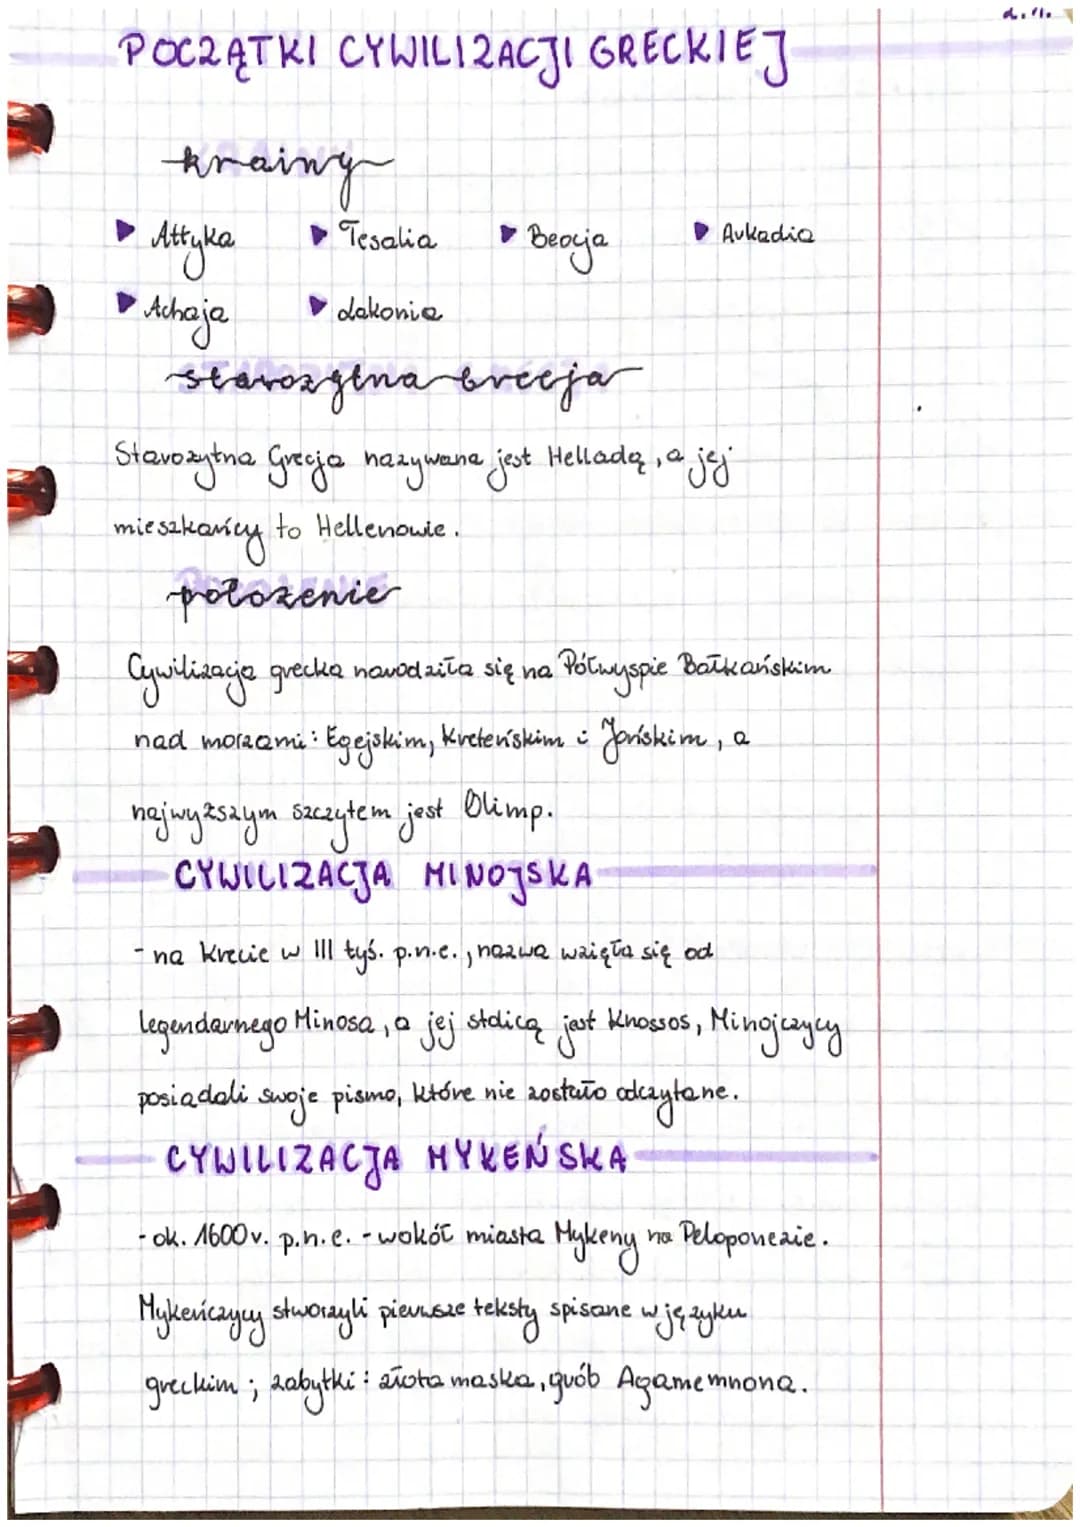 2.11.
POCZĄTKI CYWILIZACJI GRECKIEJ
krainy
Attyka Tesalia Beocja Arkadia
Achaja Lakonia
starożytna Grecja
Starożytna Grecja nazywana jest Helladą, a jej
mieszkańcy to Hellenowie.
położenie
Cywilizacja grecka narodziła się na Półwyspie Bałkańskim
nad morzami: Egejskim, Kreteńskim i Jońskim, a
najwyższym szczytem jest Olimp.
CYWILIZACJA MINOJSKA
- na Krecie w III tyś. p.n.e., nazwa wzięła się od
legendarnego Minosa, a jej stolicą jest Knossos, Minojczycy
posiadali swoje pismo, które nie zostało odczytane.
CYWILIZACJA MYKEŃSKA
- ok. 1600 r. p.n.e. - wokół miasta Mykeny na Peloponezie.
Mykeńczycy stworzyli pierwsze teksty spisane w języku
greckim; zabytki: złota maska, grób Agamemnona.